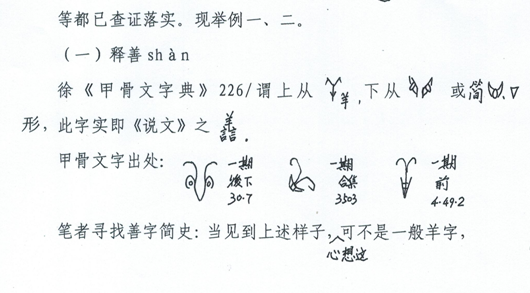 等都已查证落实。现举例一、二。
(一)释善shàn
徐《甲骨文字典》226/谓上从羊,下从 或简 形,此字实即《说文》之譱。
甲骨文字出处: 一期 後下 30.7 一期 合集 3503 一期 前 4.49.2
笔者寻找善字简史:当见到上述样子,心想这可不是一般羊字,